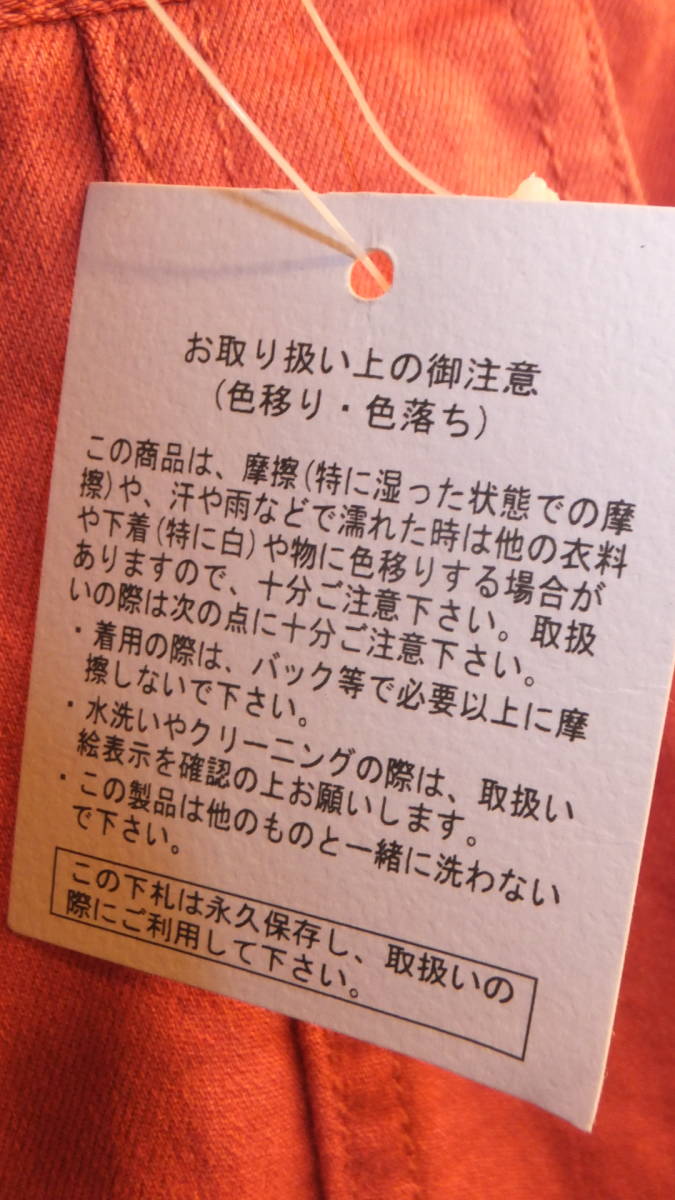 お取り扱い上の御注意
(色移り・色落ち)
この商品は、摩擦(特に湿った状態での摩
擦)や、汗や雨などで濡れた時は他の衣料
や下着(特に白)や物に色移りする場合が
ありますので、十分ご注意下さい。取扱
いの際は次の点に十分ご注意下さい。
・着用の際は、バック等で必要以上に摩
擦しないで下さい。
・水洗いやクリーニングの際は、取扱い
絵表示を確認の上お願いします。
・この製品は他のものと一緒に洗わない
で下さい。
この下札は永久保存し、取扱いの
際にご利用して下さい。